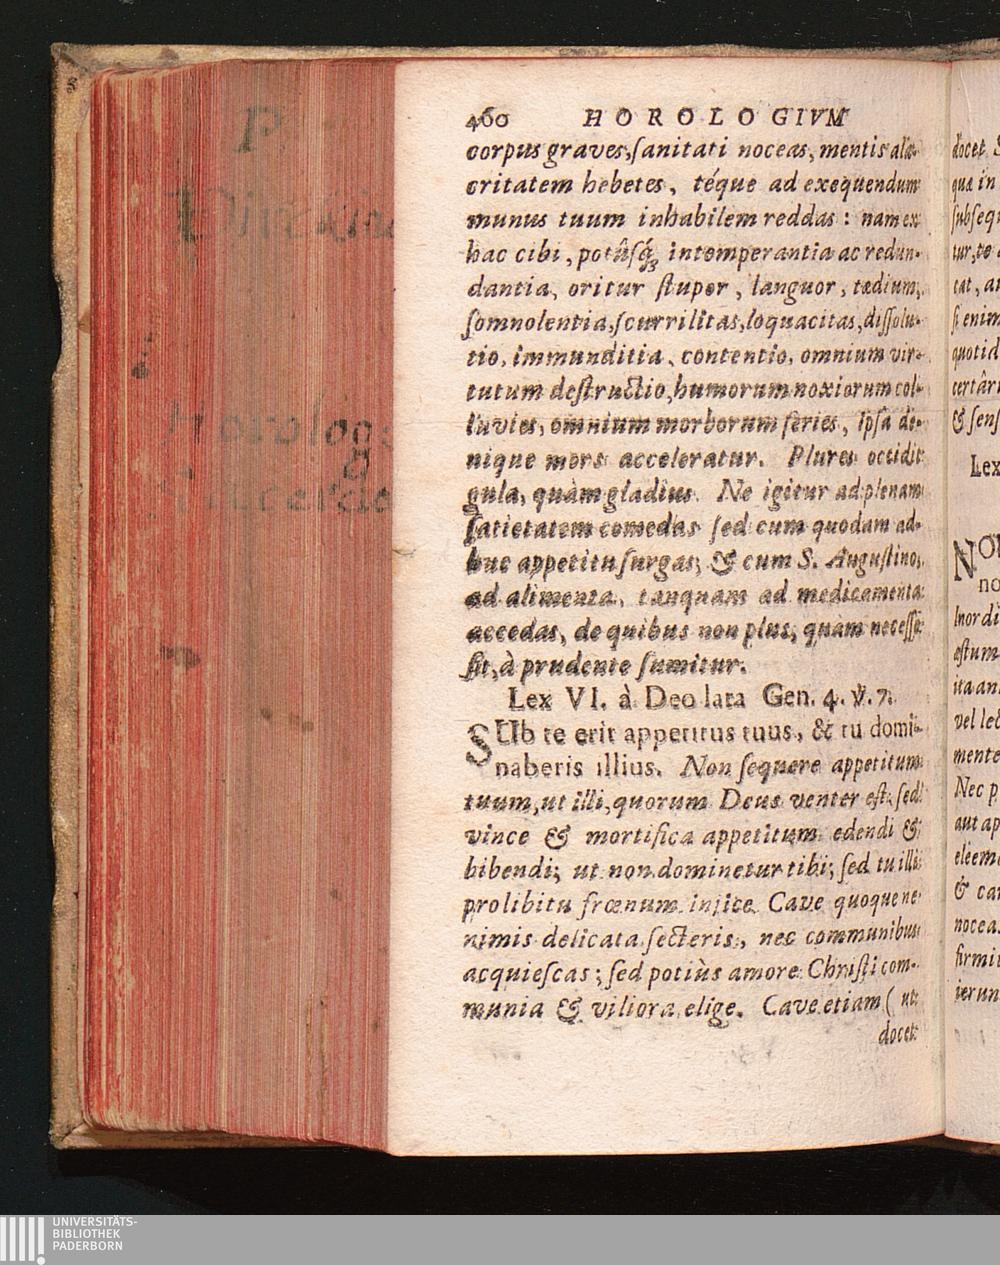 460 HOROLOGIVM
corpus graves, ſanitati noceas, mentis ala-
critatem hebetes, téque ad exequendum
munus tuum inhabilem reddas : nam ex
hac cibi, potûſq́ꝫ intemperantia ac redun-
dantia, oritur ſtupor, languor, tædium,
ſomnolentia, ſcurrilitas, loquacitas, diſſolu-
tio, immunditia, contentio, omnium vir-
tutum deſtructio, humorum noxiorum col-
luvies, omnium morborum ſeries, Ipſa de-
nique mors acceleratur. Plures occidit
gula, quàm gladius. Ne igitur ad plenam
ſatietatem comedas ſed cum quodam ad-
huc appetitu ſurgas; & cum S. Auguſtino,
ad alimenta, tanquam ad medicamenta
accedas, de quibus non plus, quam neceſſe
ſit, à prudente ſumitur.
Lex VI. à Deo lata Gen. 4. ℣. 7.
SUb te erit appetitus tuus, & tu domi-
naberis illius. Non ſequere appetitum
tuum, ut illi, quorum Deus venter eſt: ſed
vince & mortifica appetitum edendi &
bibendi; ut non dominetur tibi; ſed tu illi
pro libitu frœnum injice. Cave quoque ne
nimis delicata ſecteris, nec communibus
acquieſcas; ſed potiùs amore Chriſti com-
munia & viliora elige. Cave etiam ( ut
docet
docet
quæ in
ſubſeq
cat, a
ſi enim
quotid
certâr
& ſenſ
Lex
no
Inordi
æſtum
ita an
vel le
mente
Nec p
aut ap
eleem
& ca
nocea
firmi
ierun
P
8
UNIVERSITÄTS-
BIBLIOTHEK
PADERBORN